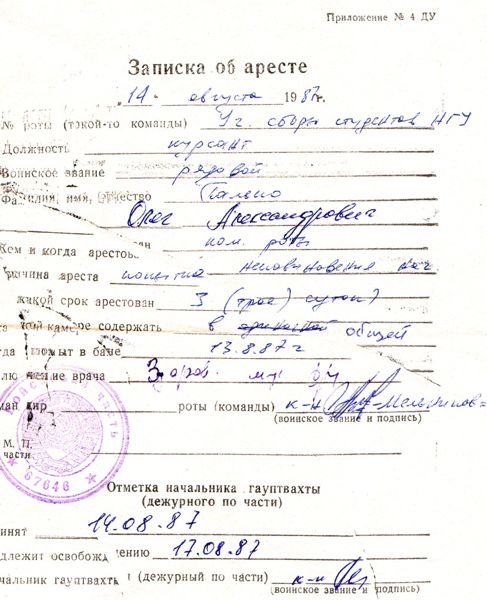 Приложение № 4 ДУ
Записка об аресте
14 августа 1987 г.
№ роты (такой-то команды) Уч. сборы студентов НГУ
Должность курсант
Воинское звание рядовой
Фамилия, имя, отчество
Олег Александрович
Кем и когда арестован ком. роты
Причина ареста попытка неповиновения нач
какой срок арестован 3 (трое) суток
камере содержать в одиночной общей
мыт в бане 13.8.87 г
лючение врача Здоров
роты (команды) к-н
(воинское звание и подпись)
М. П.
части
ВОЙСКОВАЯ ЧАСТЬ
67646
Отметка начальника гауптвахты
(дежурного по части)
инят 14.08.87
длежит освобождению 17.08.87
чальник гауптвахты (дежурный по части) к-н
(воинское звание и подпись)